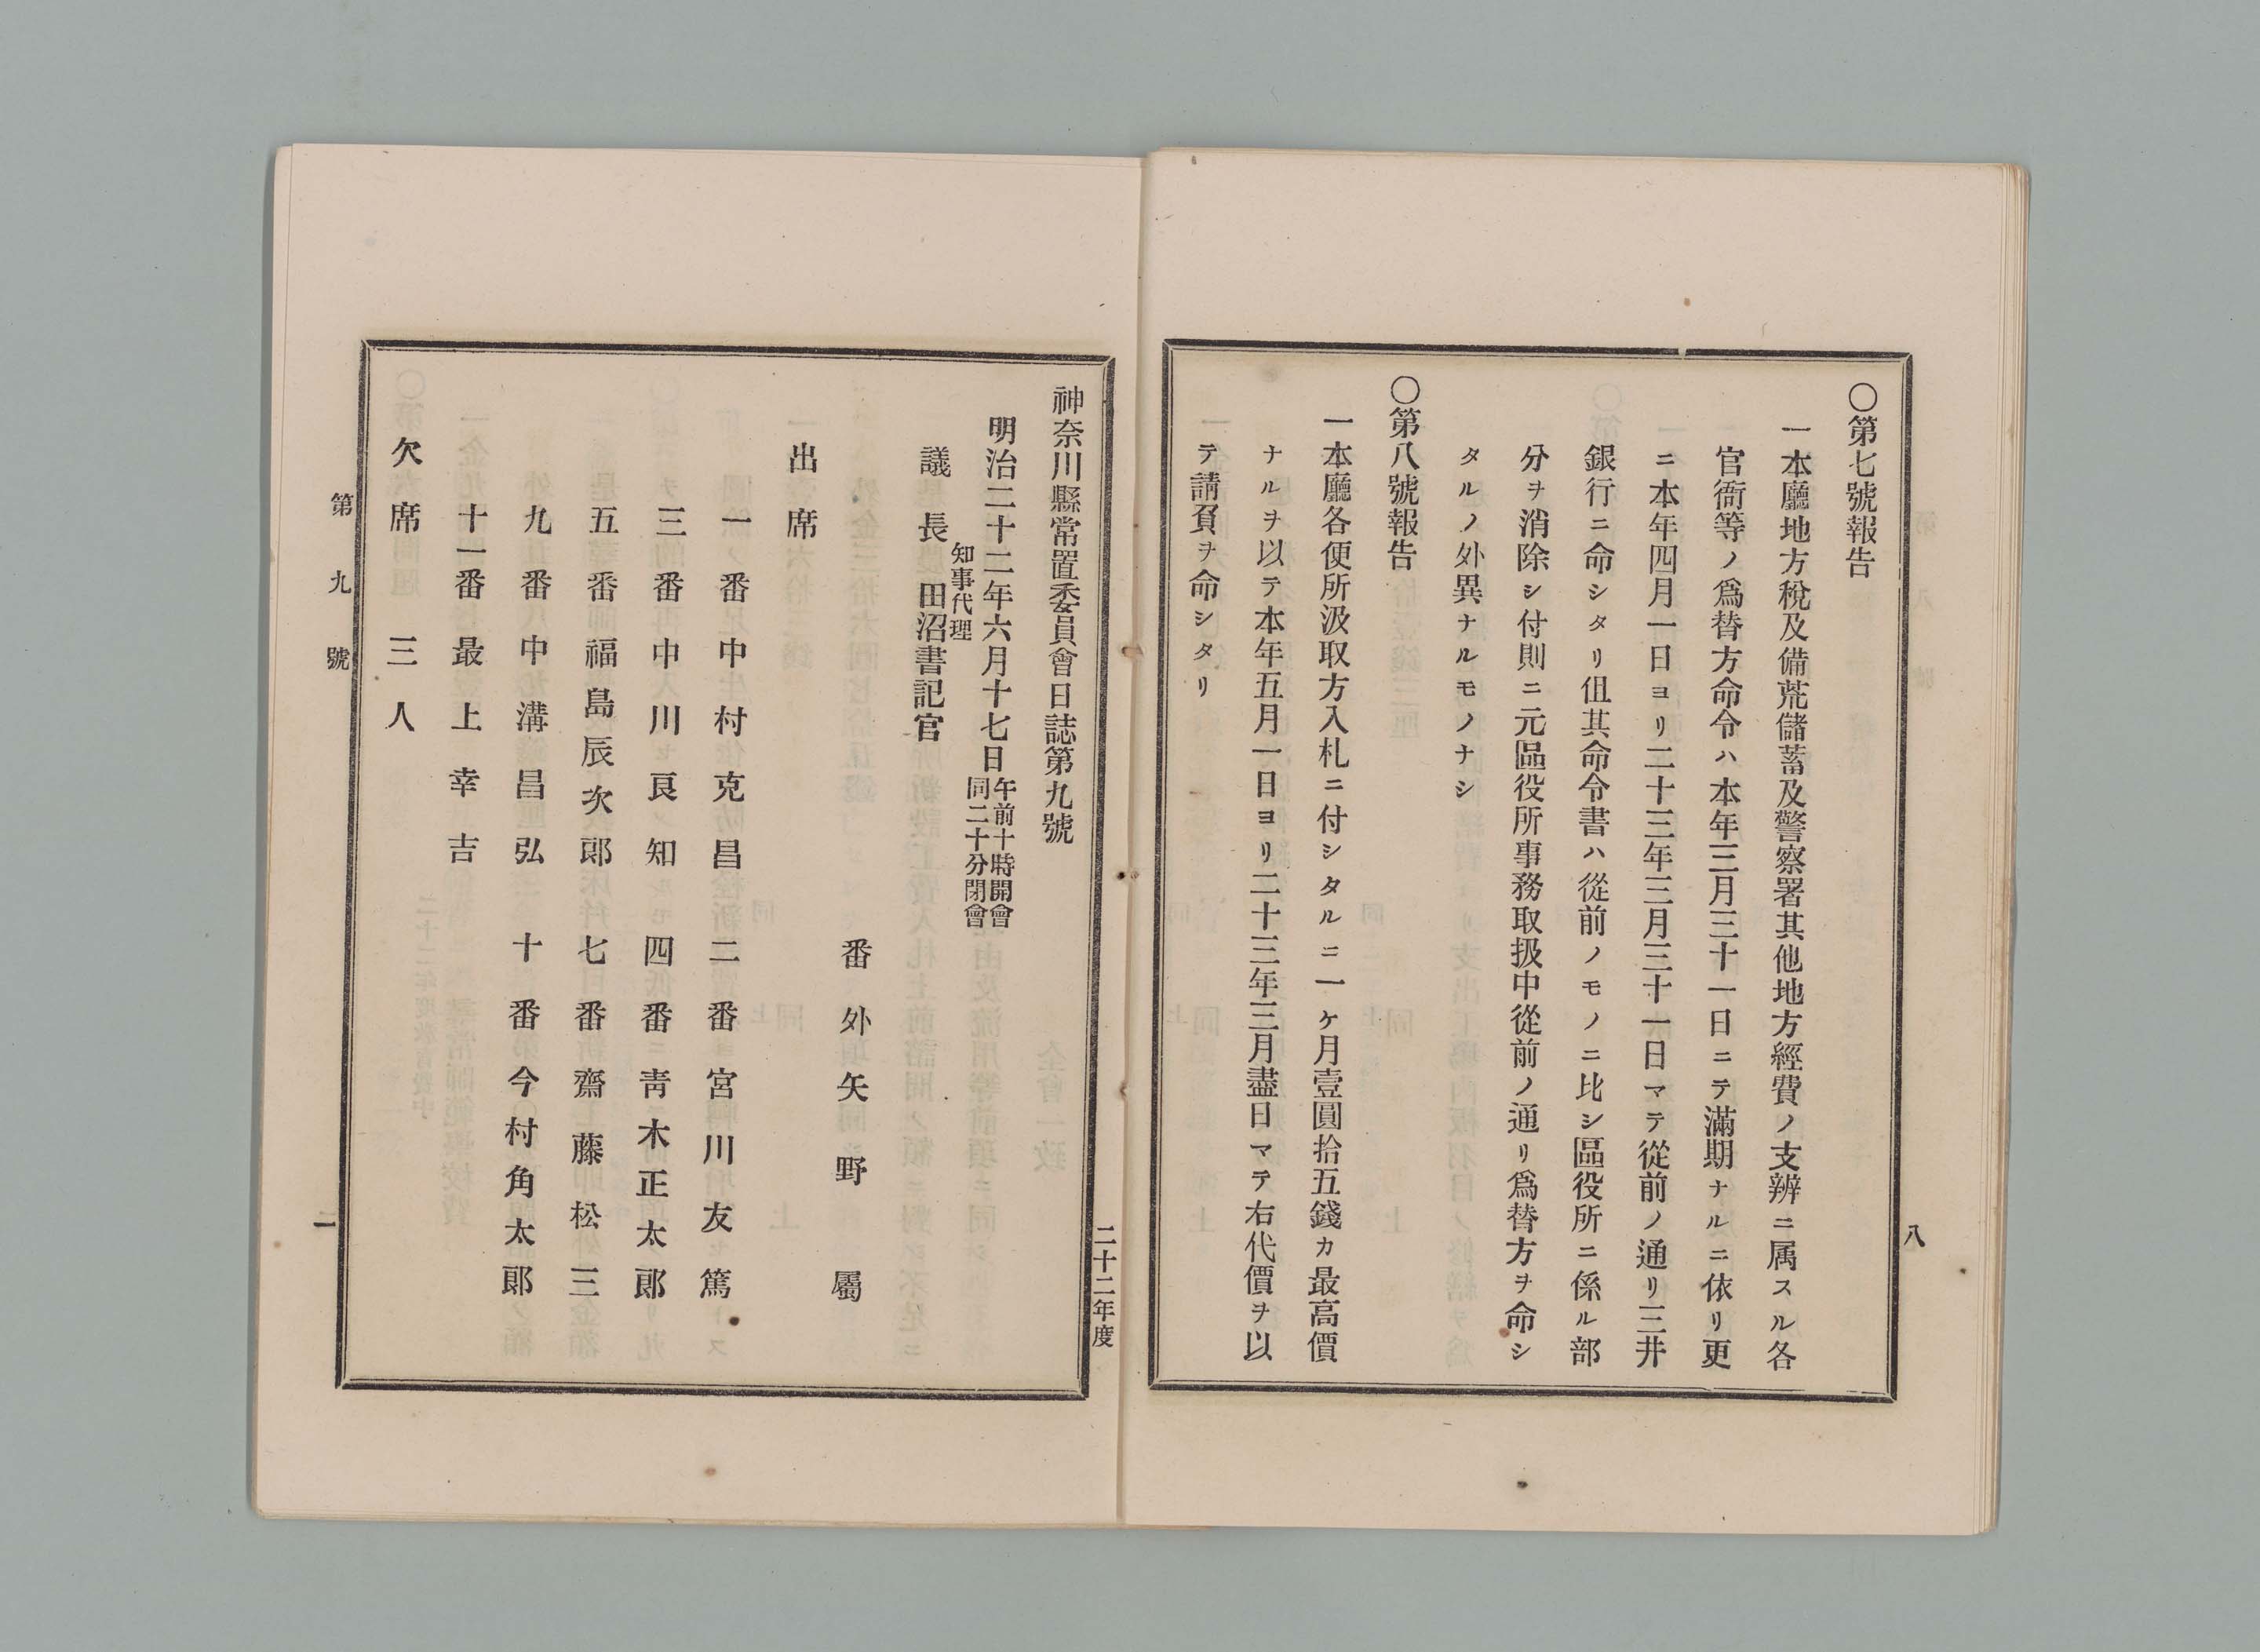 八
〇第七號報告
一本廳地方稅及備荒儲蓄及警察署其他地方經費ノ支辨ニ属スル各
官衙等ノ爲替方命令ハ本年三月三十一日ニテ滿期ナルニ依リ更
ニ本年四月一日ヨリ二十三年三月三十一日マテ從前ノ通リ三井
銀行ニ命シタリ伹其命令書ハ從前ノモノニ比シ區役所ニ係ル部
分ヲ消除シ付則ニ元區役所事務取扱中從前ノ通リ爲替方ヲ命シ
タルノ外異ナルモノナシ
〇第八號報告
一本廳各便所汲取方入札ニ付シタルニ一ヶ月壹圓拾五錢カ最高價
ナルヲ以テ本年五月一日ヨリ二十三年三月盡日マテ右代價ヲ以
テ請負ヲ命シタリ
二十二年度
神奈川縣常置委員會日誌第九號
明治二十二年六月十七日午前十時開會
同二十分閉會
知事代理
議長 田沼書記官
番外矢野屬
出席
一番中村克昌 二番宮川友篤
三番中川良知 四番靑木正太郎
五番福島辰次郎 七番齋藤松三
九番中溝昌弘 十番今村角太郎
十一番最上幸吉
欠席 三人
第九號
一